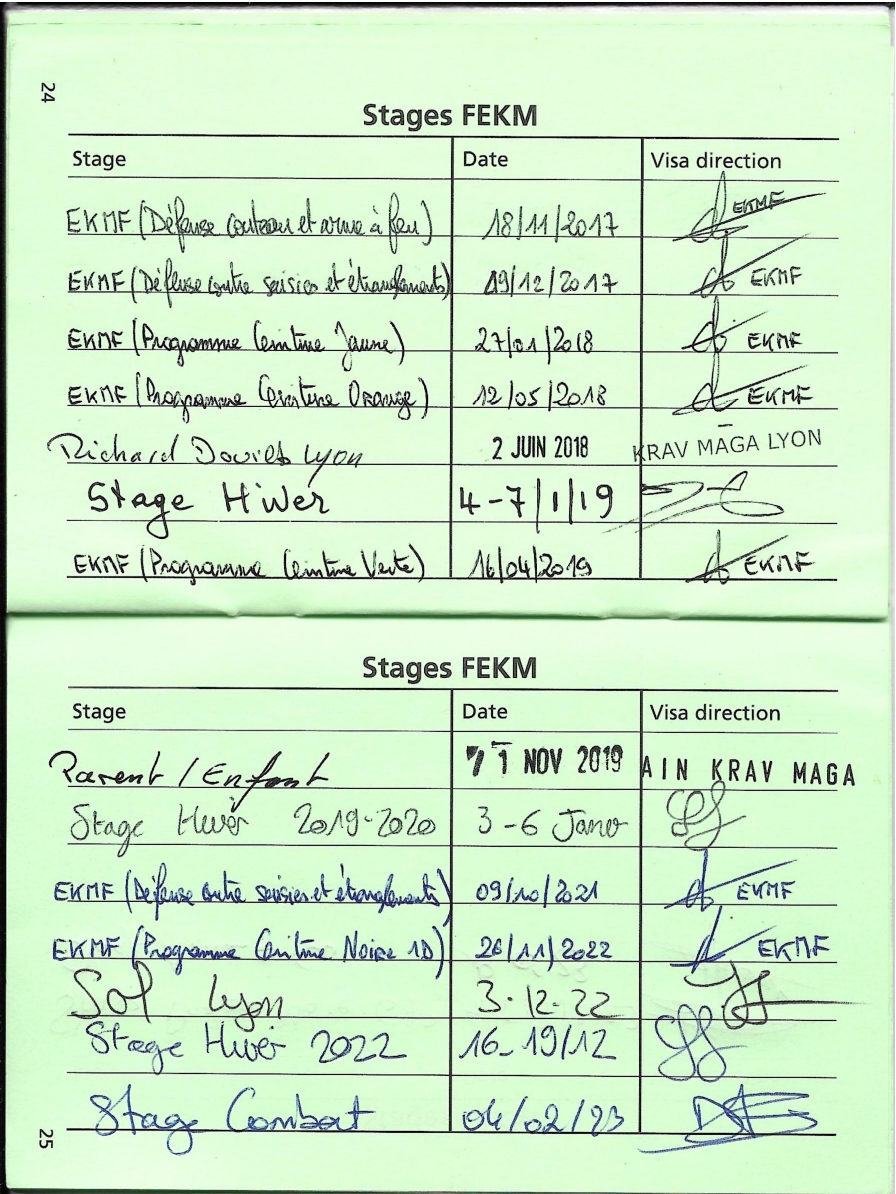 24
Stages FEKM
Stage Date Visa direction
EKMF (Défense couteau et arme à feu) 18/11/2017 EKMF
EKMF (Défense contre saisies et étranglements) 09/12/2017 EKMF
EKMF (Programme Ceinture Jaune) 27/01/2018 EKMF
EKMF (Programme Ceinture Orange) 12/05/2018 EKMF
Richard Lyon 2 JUIN 2018 KRAV MAGA LYON
Stage Hiver 4-7/1/19
EKMF (Programme Ceinture Verte) 16/04/2019 EKMF
Stages FEKM
Stage Date Visa direction
Parent / Enfant 1 NOV 2019 AIN KRAV MAGA
Stage Hiver 2019-2020 3-6 Janv
EKMF (Défense contre saisies et étranglements) 09/10/2021 EKMF
EKMF (Programme Ceinture Noire 1D) 26/11/2022 EKMF
Sol Lyon 3-12-22
Stage Hiver 2022 16-19/12
Stage Combat 04/02/23
25